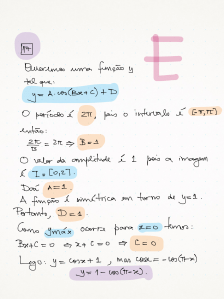 E
Queremos uma função y
tal que:
y = A · cos(Bx+C) + D
O período é 2π, pois o intervalo é [-π,π]
então:
2π/B = 2π ⇒ B = 1
O valor da amplitude é 1 pois a imagem
é I = [0,2].
Daí A = 1.
A função é simétrica em torno de y=1.
Portanto, D = 1.
Como ymáx ocorre para x=0 temos:
Bx+C = 0 ⇔ x+C = 0 ⇒ C = 0
Logo: y = cosx + 1, mas cosx = -cos(π-x)
y = 1 - cos(π-x)